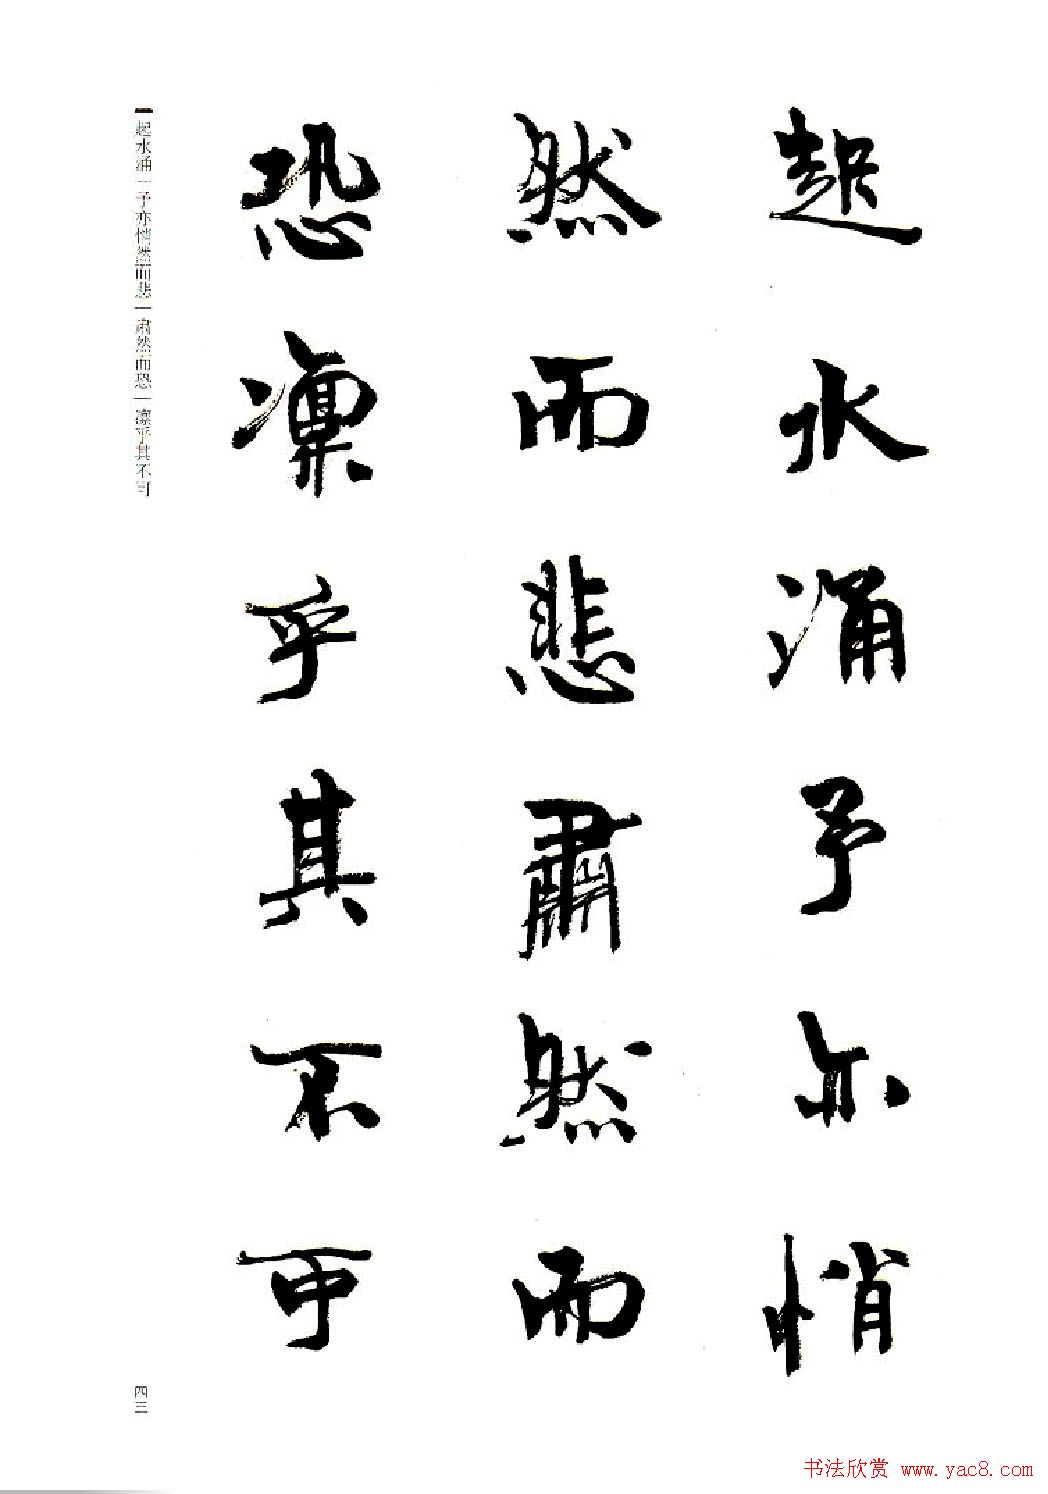 起水涌予亦悄
然而悲肃然而
恐凛乎其不可
起水涌｜予亦悄然而悲｜肃然而恐｜凛乎其不可
四三
书法欣赏 www.yac8.com